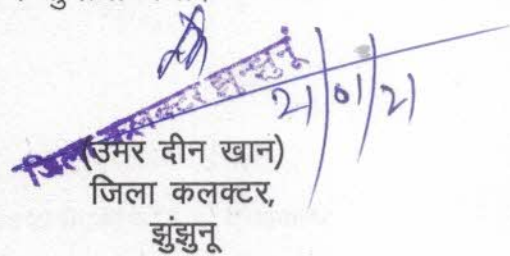 जिला कलक्टर झुन्झुनूं
21/01/21
(उमर दीन खान)
जिला कलक्टर,
झुंझुनू